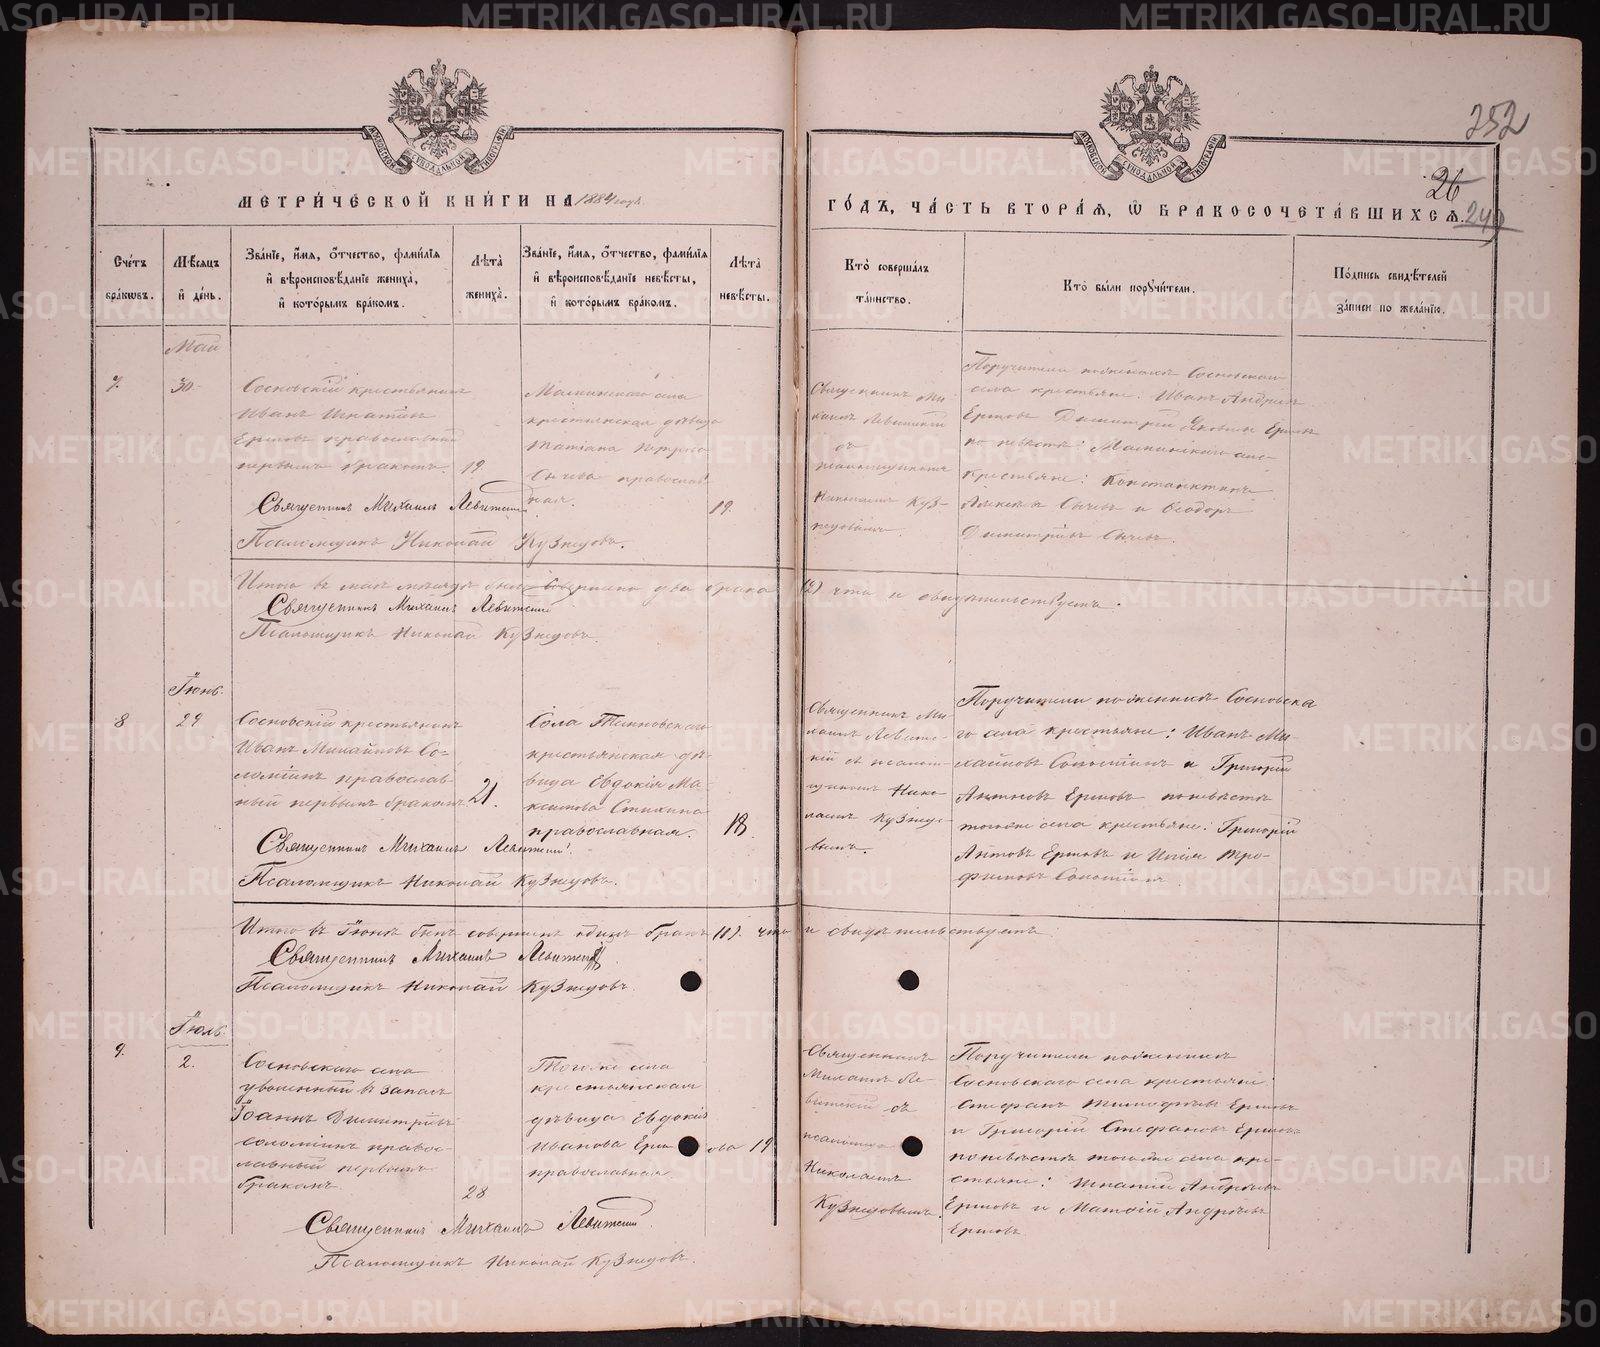 252
26
249
МЕТРИ́ЧЕСКОЙ КНИ́ГИ НА 1884 годъ
ГО́ДЪ, ЧА́СТЬ ВТОРА́Я, Ѡ БРАКОСОЧЕТА́ВШИХСЯ.
Сче́тъ бра́ковъ.
Мѣ́сяцъ и҆ де́нь.
Зва́нїе, и҆́мя, ѻ҆́тчество, фами́лїя и҆ вѣроисповѣ́данїе жениха̀, и҆ кото́рымъ бра́комъ.
Лѣ́та жениха̀.
Зва́нїе, и҆́мя, ѻ҆́тчество, фами́лїя и҆ вѣроисповѣ́данїе невѣ́сты, и҆ кото́рымъ бра́комъ.
Лѣ́та невѣ́сты.
Кто̀ соверша́лъ та́инство.
Кто̀ бы́ли порꙋчи́тели.
По́дпись свидѣ́телей за́писи по жела́нїю.
Май
7.
30.
Сосновскій крестьянинъ
Иванъ Игнатіевъ
Ершовъ православный
первымъ бракомъ.
19
Маминскаго села
крестьянская дѣвица
Татіана Петрова
Сычева православ-
ная.
19.
Священникъ Ми-
хаилъ Левитскій
съ
псаломщикомъ
Николаемъ Куз-
нецовымъ.
Поручители по женихѣ Сосновскаго
села крестьяне: Иванъ Андреевъ
Ершовъ Димитрій Яковлевъ Ершовъ
по невѣстѣ: Маминскаго села
крестьяне: Константинъ
Алексѣевъ Сычевъ и Ѳеодоръ
Димитріевъ Сычевъ.
Священникъ Михаилъ Левитскій
Псаломщикъ Николай Кузнецовъ.
Итого въ маѣ мѣсяцѣ было совершено два брака (2) что и свидѣтельствуетъ:
Священникъ Михаилъ Левитскій
Псаломщикъ Николай Кузнецовъ.
Іюнь.
8
29
Сосновскій крестьянинъ
Иванъ Михайловъ Со-
ломѣинъ православ-
ный первымъ бракомъ
21.
Села
крестьянская дѣ-
вица Евдокія Ма-
ксимова Стихина
православная.
18.
Священникъ Ми-
хаилъ Левитс-
кій съ псалом-
щикомъ Нико-
лаемъ Кузнецо-
вымъ.
Поручители по женихѣ Сосновска
го села крестьяне: Иванъ Ми-
хайловъ Соломѣинъ и Григорій
Антоновъ Ершовъ по невѣстѣ
тогоже села крестьяне: Григорій
Ершовъ и Илія Тро-
фимовъ Соломѣинъ.
Священникъ Михаилъ Левитскій.
Псаломщикъ Николай Кузнецовъ.
Итого въ Іюнѣ былъ совершенъ одинъ бракъ (1). что и свидѣтельствуетъ
Священникъ Михаилъ Левитскій.
Псаломщикъ Николай Кузнецовъ.
Іюль.
9.
2.
Сосновскаго села
уволенный въ запасъ
Іоаннъ Димитріевъ
Соломѣинъ правос-
лавный первымъ
бракомъ.
28
Того-же села
крестьянская
дѣвица Евдокія
Иванова Ершова
православная.
19
Священникъ
Михаилъ Ле-
витскій съ
псаломщ
Николаемъ
Кузнецовымъ.
Поручители по женихѣ
Сосновскаго села крестьяне:
Стефанъ Тимофѣевъ Ершовъ
и Григорій Стефановъ Ершовъ
по невѣстѣ тогоже села кре-
стьяне: Игнатій Андреевъ
Ершовъ и Матѳій Андреевъ
Ершовъ
Священникъ Михаилъ Левитскій.
Псаломщикъ Николай Кузнецовъ.
METRIKI.GASO-URAL.RU